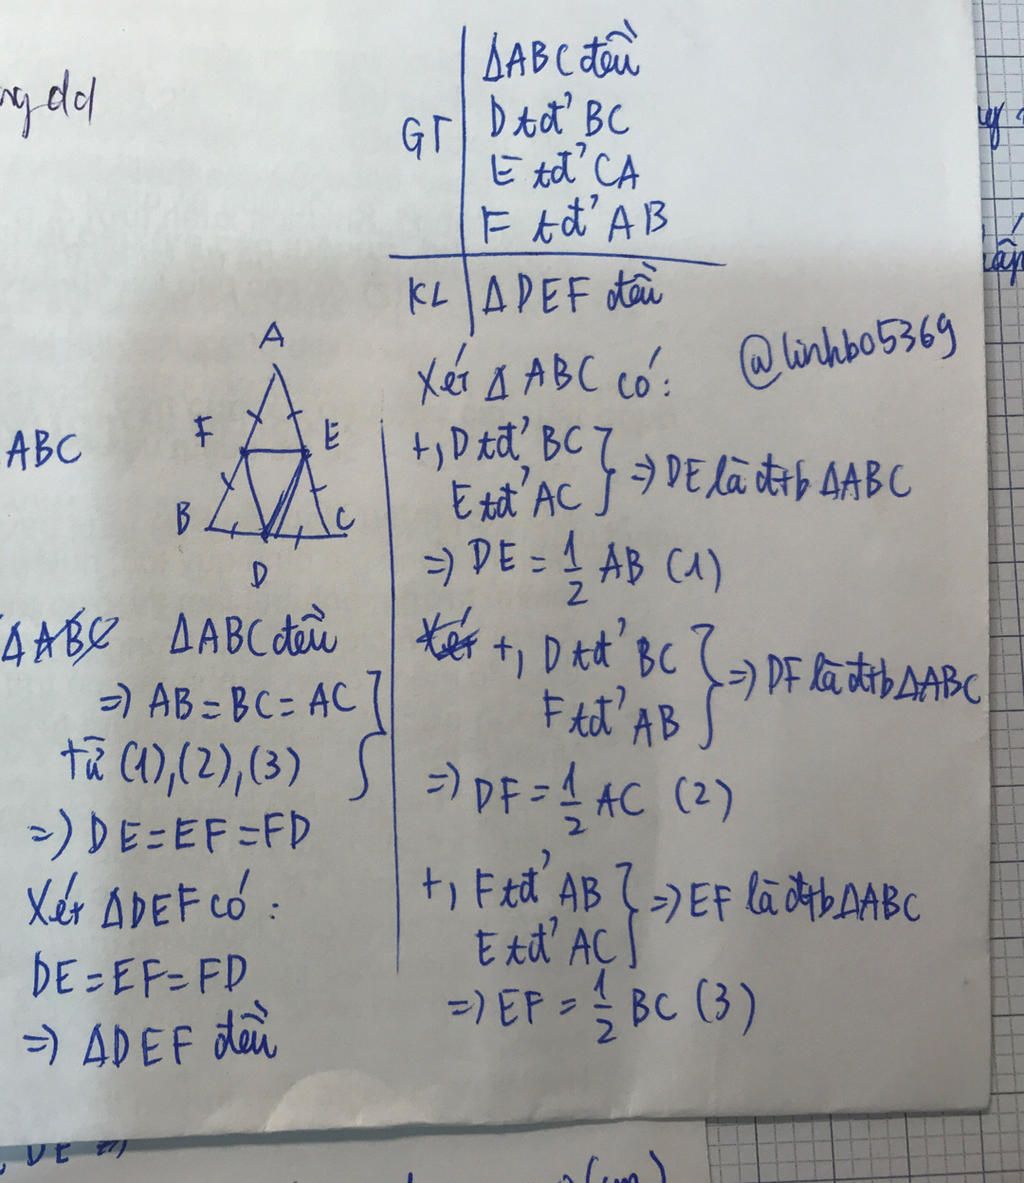 GT
ΔABC đều
D tđ' BC
E tđ' CA
F tđ' AB
KL
ΔDEF đều
@linhb05369
Xét Δ ABC có:
+, D tđ' BC
E tđ' AC } => DE là đtb ΔABC
=> DE = 1/2 AB (1)
+, D tđ' BC
F tđ' AB } => DF là đtb ΔABC
=> DF = 1/2 AC (2)
+, F tđ' AB
E tđ' AC } => EF là đtb ΔABC
=> EF = 1/2 BC (3)
ABC
A
F E
B C
D
ΔABC ΔABC đều
=> AB = BC = AC
từ (1), (2), (3) }
=> DE = EF = FD
Xét ΔDEF có:
DE = EF = FD
=> ΔDEF đều
DE